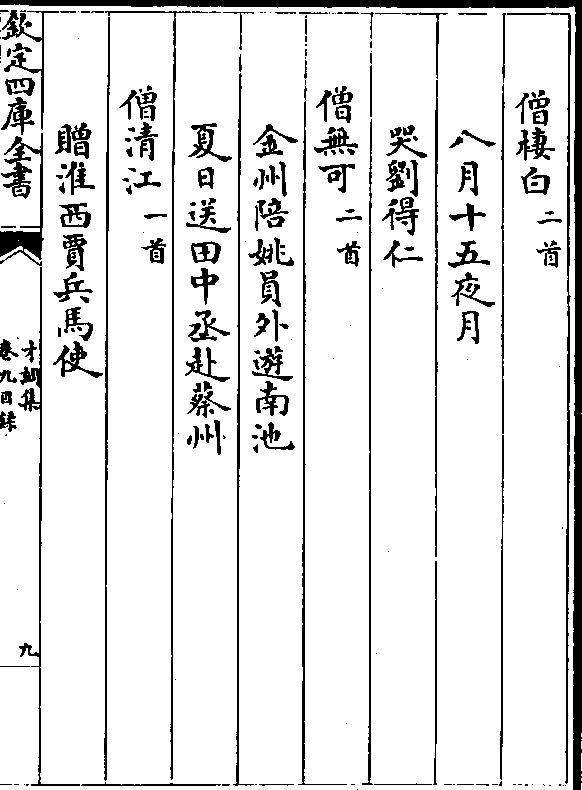 僧棲白二首
八月十五夜月
哭劉得仁
僧無可二首
金州陪姚員外遊南池
夏日送田中丞赴蔡州
僧清江一首
贈淮西賈兵馬使
欽定四庫全書
才調集
卷九目録
九